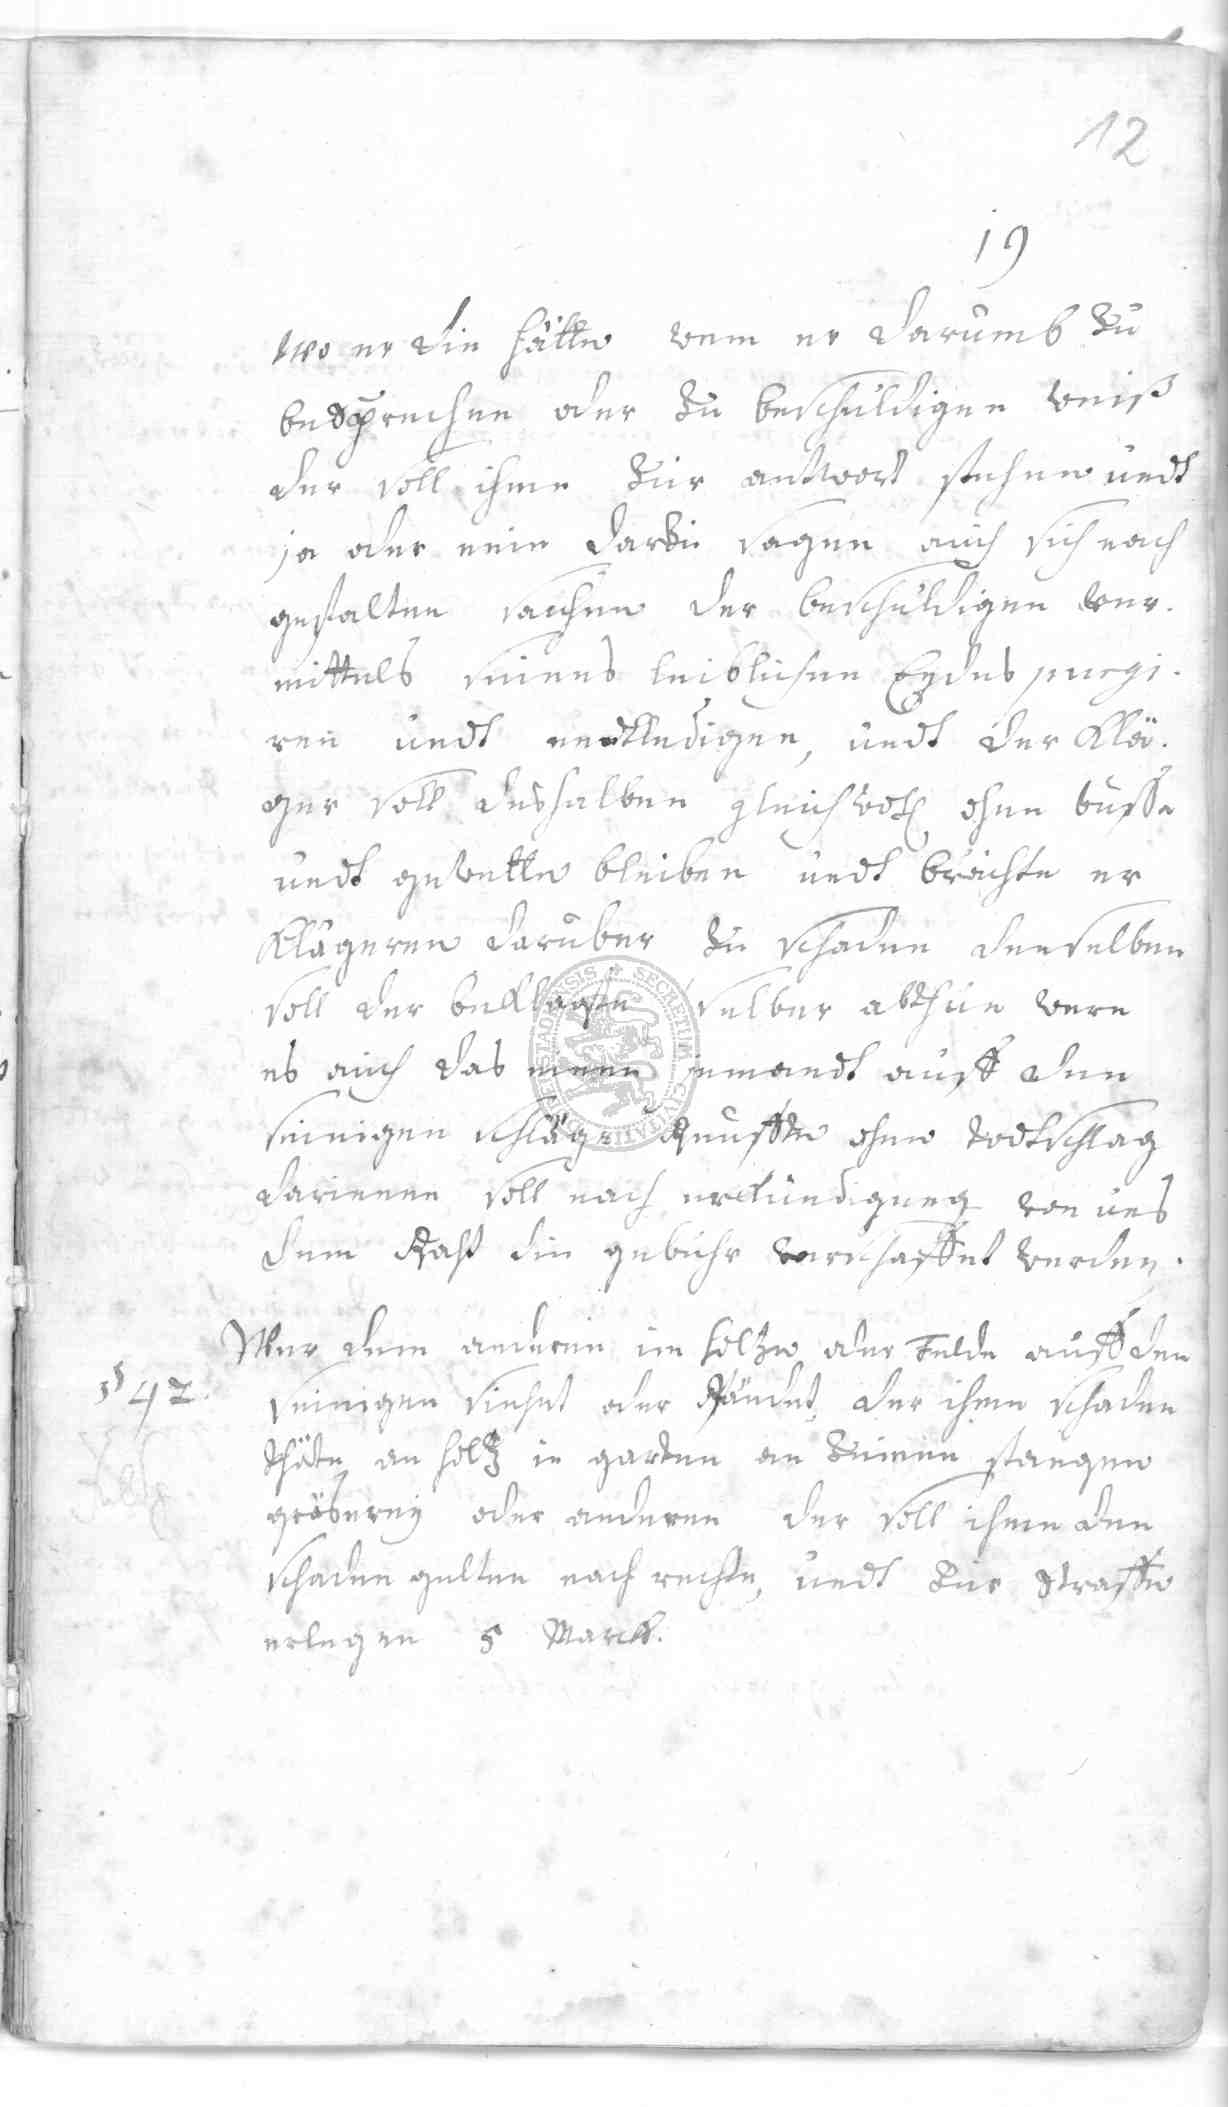 12
19
wo er die hätte wem er darumb zu
besprechen oder zu beschuldigen weiß
der soll ihme zur antwort stehen undt
ja oder nein darzu sagen auch sich nach
gestalten sachen der beschuldigen ver-
mittels seines leiblichen Eydes purgi-
ren undt endtledigen, undt der Klä-
ger soll deshalben gleichwoll ohne busse
undt gewette bleiben undt brächte er
Klägeren daruber zu schaden denselben
soll der beklagte selber abthun were
es auch das iemandt auff den
seinigen schläge ohne todtschlag
darinnen soll nach erkündigung von uns
dem Raht die gebuhr verschaffet werden.
Wer dem anderen im holtze oder Felde auff den
§ 42.
seinigen siehet oder findet, der ihme schaden
thäte an holtz in garten an zeunen stangen
gräserey oder anderen der soll ihme den
schaden gelten nach rechte, undt zur straffe
erlegen 5 Marck.
SECRETUM CIVITATIS